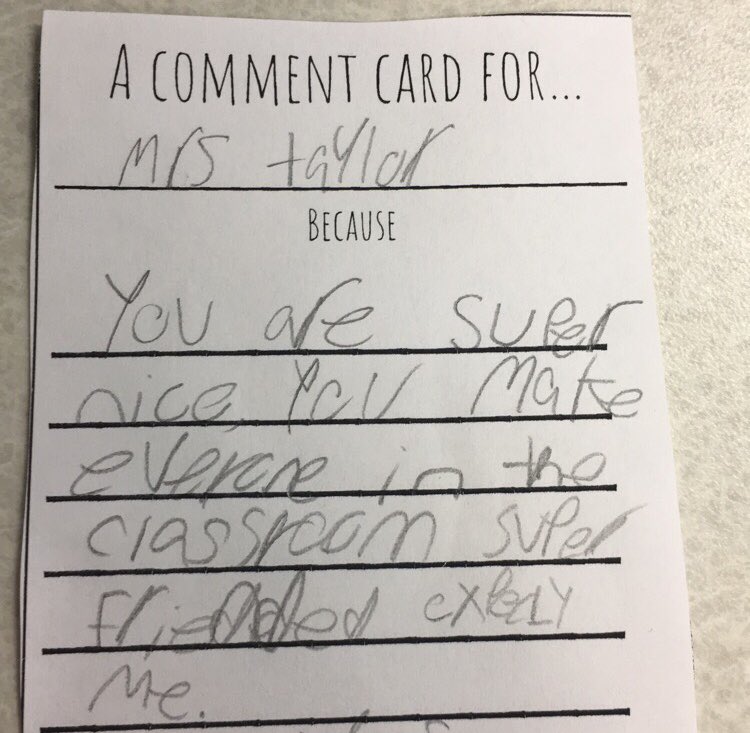 A COMMENT CARD FOR...
Mrs taylor
BECAUSE
You are super
nice, You make
everone in the
classroom super
me.